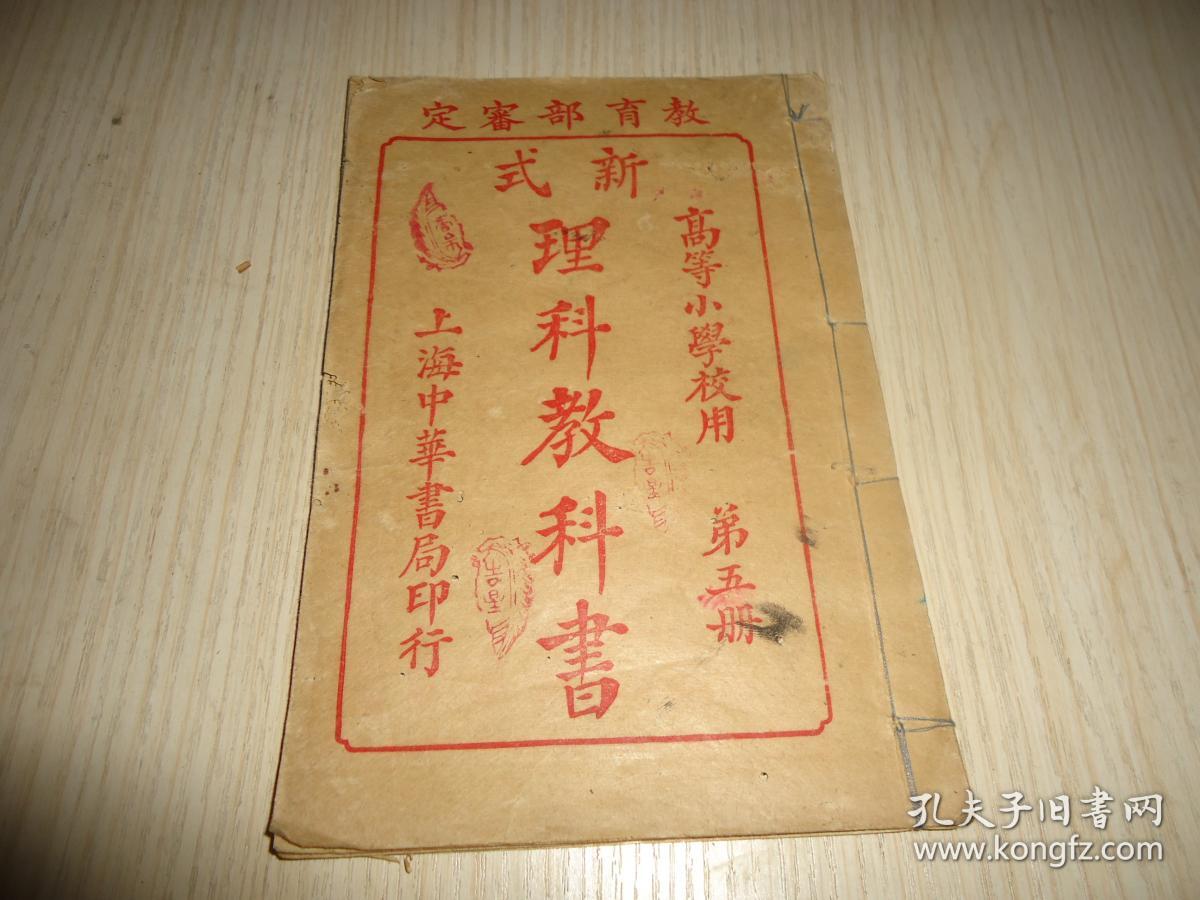 教育部審定
新式
高等小學校用 第五册
理科教科書
上海中華書局印行
吉星
吉星
孔夫子旧书网
www.kongfz.com